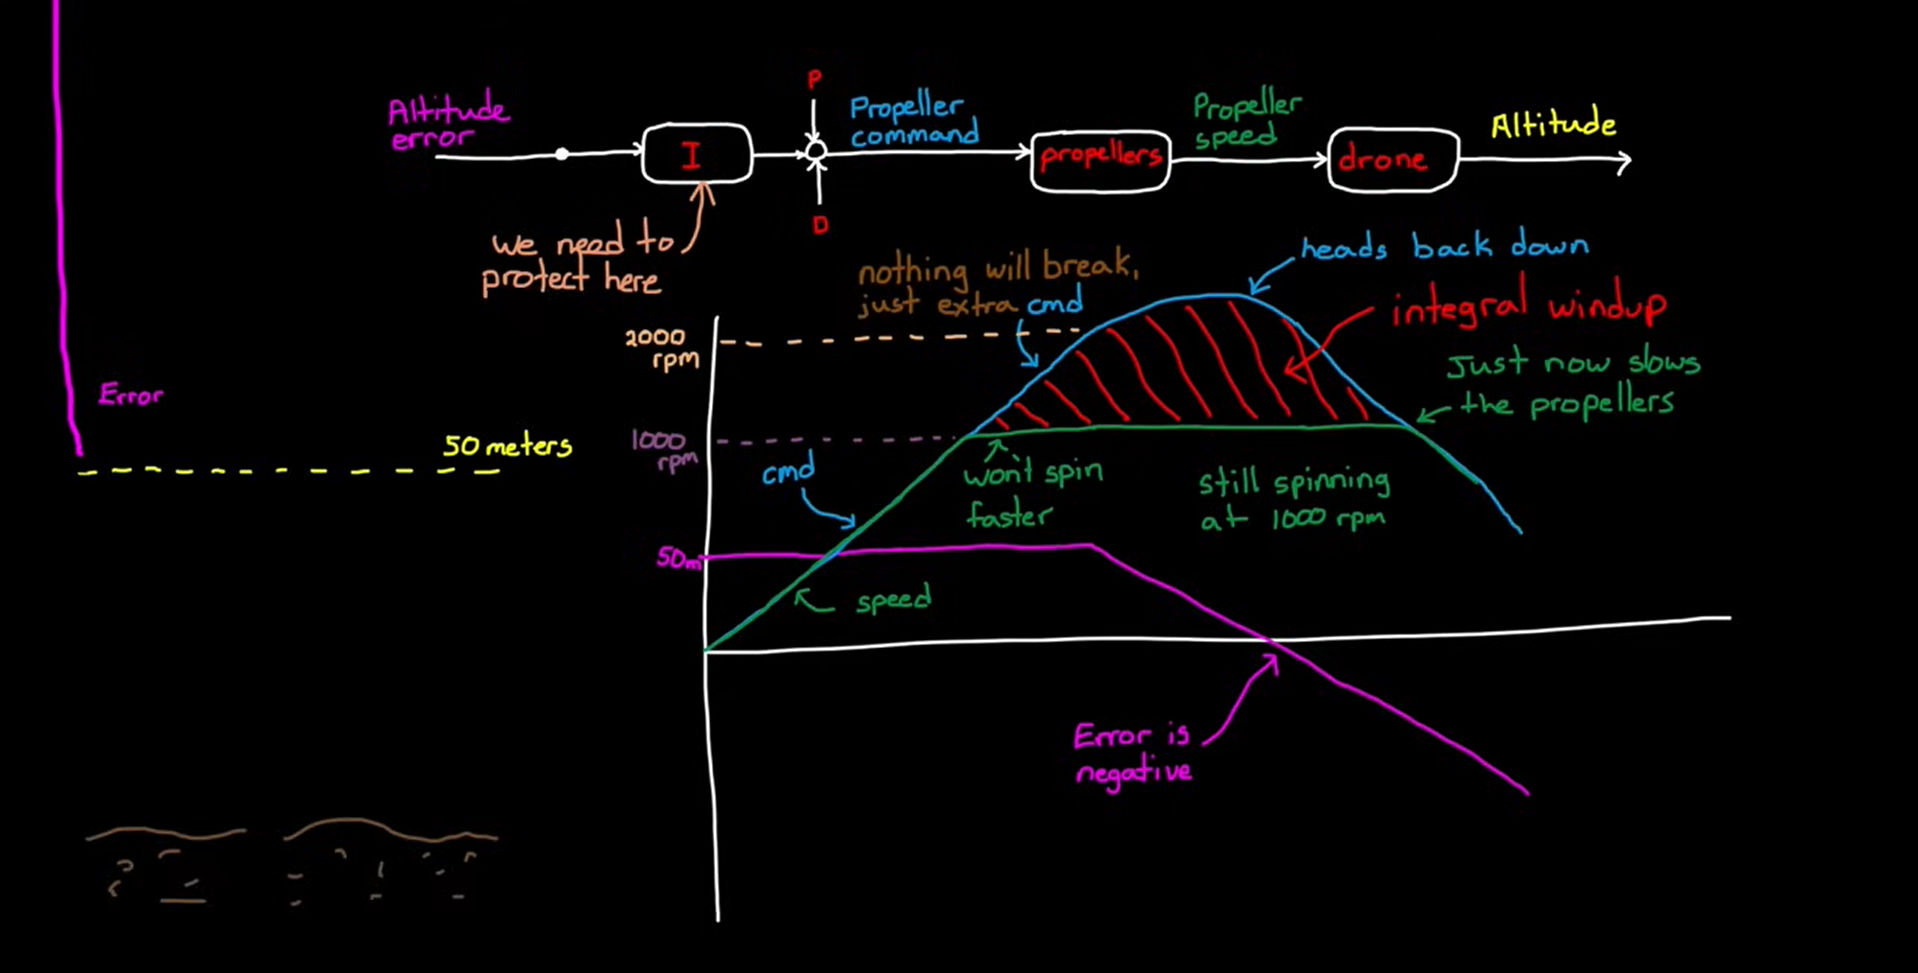 P
Altitude
error
I
Propeller
command
propellers
Propeller
speed
drone
Altitude
D
we need to
protect here
nothing will break,
just extra cmd
heads back down
integral windup
2000
rpm
Just now slows
the propellers
Error
50 meters
1000
rpm
cmd
won't spin
faster
still spinning
at 1000 rpm
50m
speed
Error is
negative